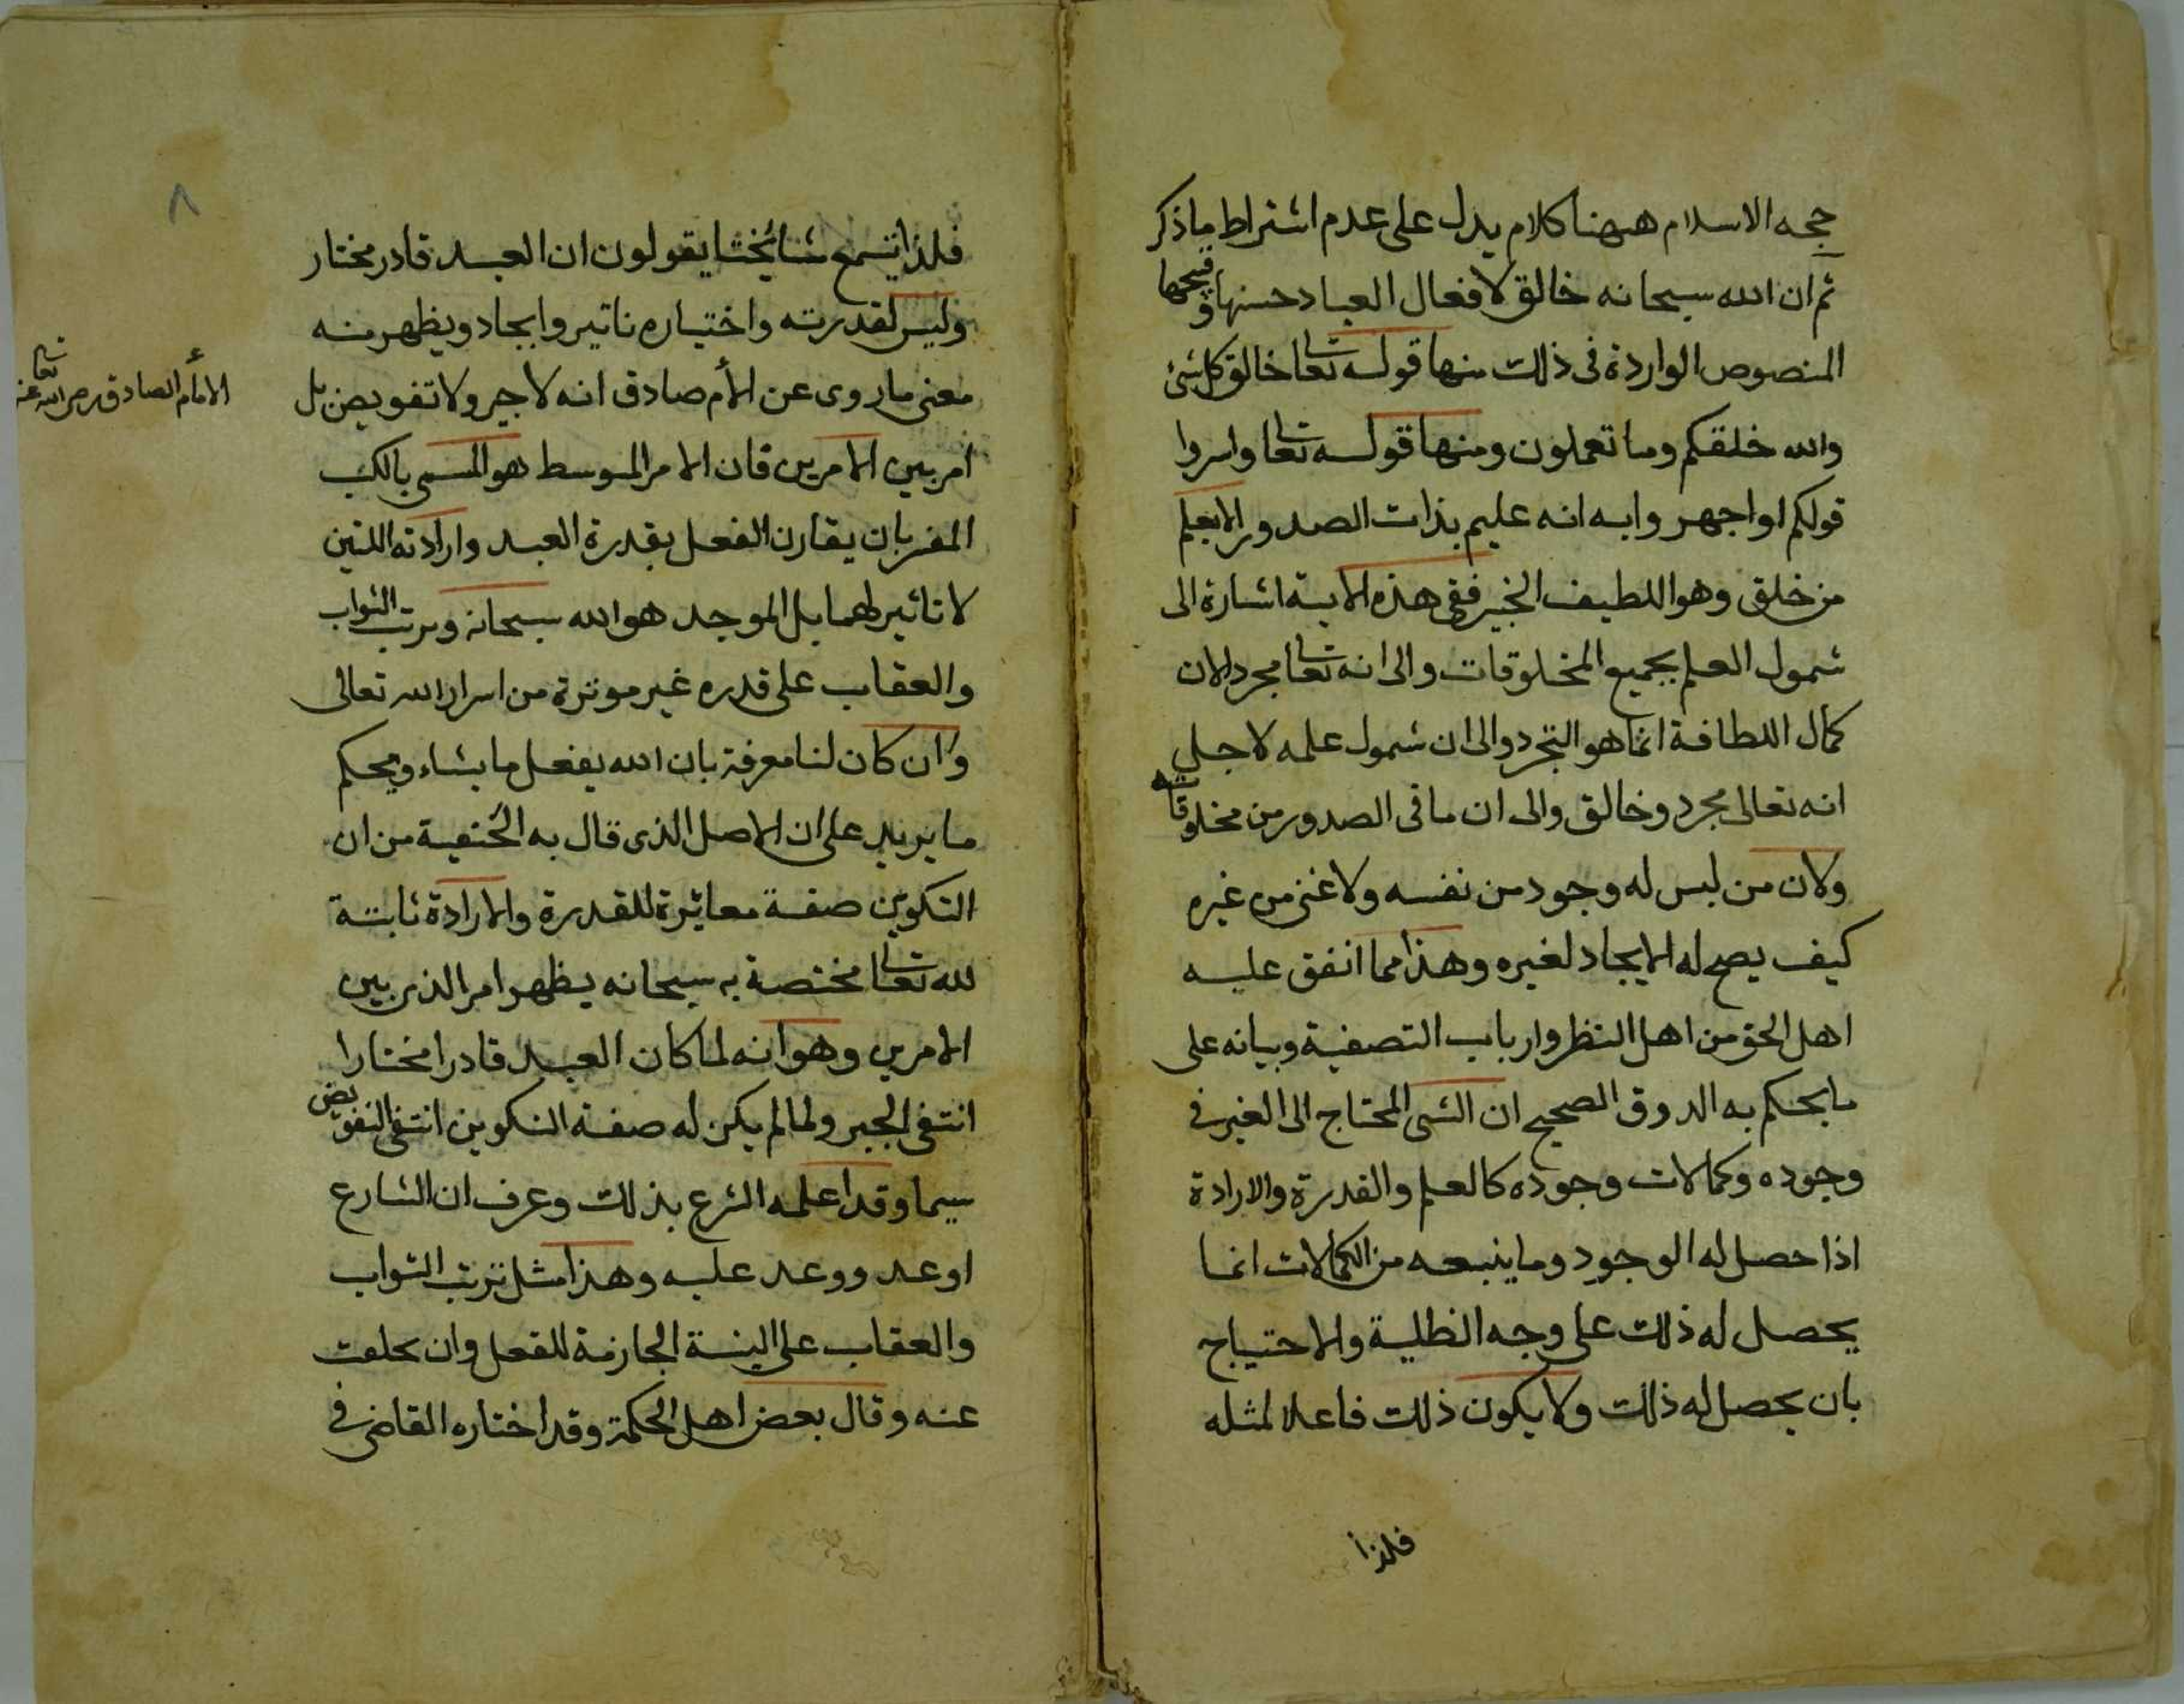 حجه الاسلام ههنا كلام يدل على عدم اشتراط ما ذكر
ثم ان الله سبحانه خالق لافعال العباد حسنها وقبحها
المنصوص الواردة فى ذلك منها قوله تعالى خالق كل شئ
والله خلقكم وما تعملون ومنها قوله تعالى واسروا
قولكم او اجهروا به انه عليم بذات الصدور الا يعلم
من خلق وهو اللطيف الخبير ففى هذه الاية اشارة الى
شمول العلم بجميع المخلوقات والى انه تعالى مجرد لان
كمال اللطافة انما هو التجرد والى ان شمول علمه لاجل
انه تعالى مجرد وخالق والى ان ما فى الصدور من مخلوقاته
ولان من ليس له وجود من نفسه ولا غنى من غيره
كيف يصح له الايجاد لغيره وهذا مما اتفق عليه
اهل الحق من اهل النظر وارباب التصفية وبيانه على
ما يحكم به الدوق الصحيح ان الشى المحتاج الى الغير فى
وجوده وكمالات وجوده كالعلم والقدرة والارادة
اذا حصل له الوجود وما يتبعه من الكمالات انما
يحصل له ذلك على وجه الظلية والاحتياج
بان يحصل له ذلك ولا يكون ذلك فاعلا لمثله
فلذا
٨
فلذا تسمع مشايخنا يقولون ان العبد قادر مختار
وليس لقدرته واختياره تاتير وايجاد ويظهر منه
معنى ما روى عن الأم صادق انه لا جبر ولا تفويض بل
الأمام الصادق رضى الله تعالى عنه
امر بين الامرين فان الامر المتوسط هو المسمى بالكسب
المفسر بان يقارن الفعل بقدرة العبد وارادته اللتين
لا تاثير لهما بل الموجد هو الله سبحانه وترتب الثواب
والعقاب على قدره غير موثرة من اسرار الله تعالى
وان كان لنا معرفة بان الله يفعل ما يشاء ويحكم
ما يريد على ان الاصل الذى قال به الحنفية من ان
التكوين صفة مغائرة للقدرة والارادة ثابتة
لله تعالى مختصة به سبحانه يظهر امر الذى بين
الامرين وهو انه لما كان العبد قادرا مختارا
انتفى الجبر ولما لم يكن له صفة التكوين انتفى التفويض
سيما وقد اعلمه الشرع بذلك وعرف ان الشارع
اوعد ووعد عليه وهذا مثل ترتب الثواب
والعقاب على النية الجازمة للفعل وان تخلفت
عنه وقال بعض اهل الحكمة وقد اختاره القاضى فى